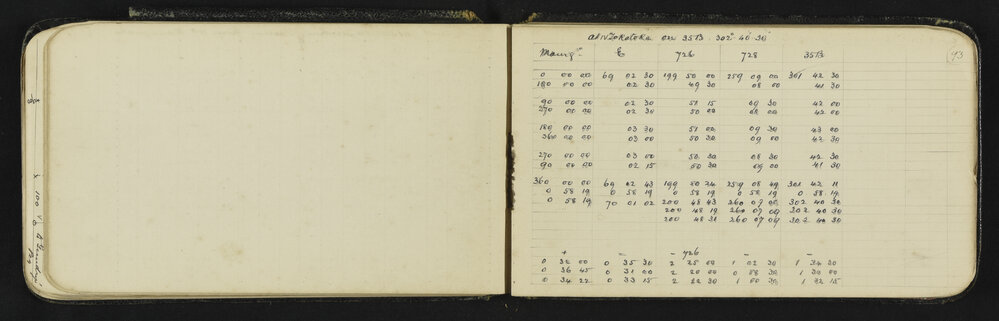 at IV Tokatoka on 35 B 302° 40' 30"
Maung. E 726 728 35 B 93
0 00 00 69 02 30 199 50 00 259 09 00 301 42 30
180 00 00 02 30 49 30 08 00 41 30
90 00 00 02 30 51 15 09 30 42 00
270 00 00 02 30 50 00 08 00 42 00
180 00 00 03 30 51 00 09 30 43 00
360 00 00 03 00 50 30 09 00 42 30
270 00 00 03 00 50 30 08 30 42 30
90 00 00 02 15 50 30 09 00 41 30
360 00 00 69 02 43 199 50 24 259 08 49 301 42 11
0 58 19 0 58 19 0 58 19 0 58 19 0 58 19
0 58 19 70 01 02 200 48 43 260 07 08 302 40 30
200 48 19 260 07 09 302 40 30
200 48 31 260 07 09 302 40 30
+ - - 726 - -
0 32 00 0 35 30 2 25 00 1 02 30 1 34 30
0 36 45 0 31 00 2 20 00 0 58 30 1 30 00
0 34 22 0 33 15 2 22 30 1 00 30 1 32 15
100